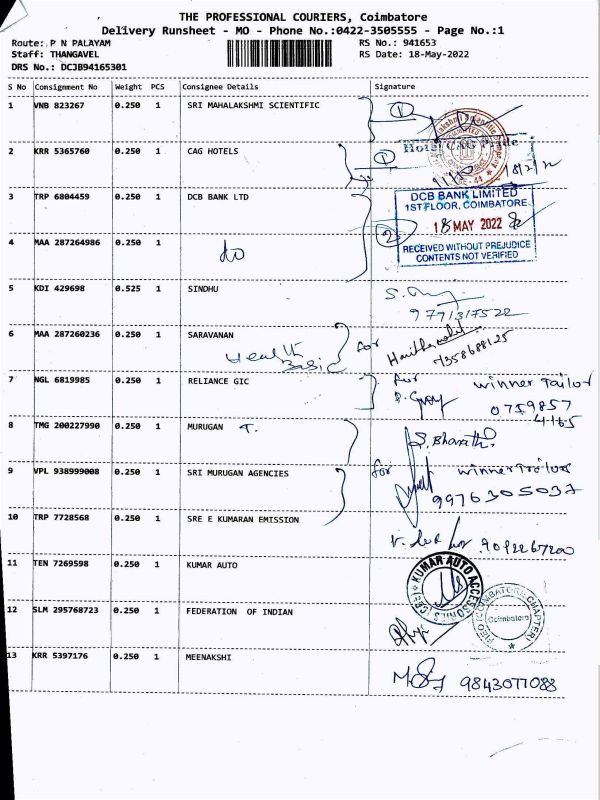 THE PROFESSIONAL COURIERS, Coimbatore
Delivery Runsheet - MO - Phone No.:0422-3505555 - Page No.:1
Route: P N PALAYAM RS No.: 941653
Staff: THANGAVEL RS Date: 18-May-2022
DRS No.: DCJB94165301
S No Consignment No Weight PCS Consignee Details Signature
1 VNB 823267 0.250 1 SRI MAHALAKSHMI SCIENTIFIC 1
2 KRR 5365760 0.250 1 CAG HOTELS 1 Hotel CAG Pride
3 TRP 6804459 0.250 1 DCB BANK LTD
DCB BANK LIMITED
1ST FLOOR, COIMBATORE.
18 MAY 2022
RECEIVED WITHOUT PREJUDICE
CONTENTS NOT VERIFIED
4 MAA 287264986 0.250 1 do 2
5 KDI 429698 0.525 1 SINDHU
9771317522
6 MAA 287260236 0.250 1 SARAVANAN for
Health Basic
7358688125
7 NGL 6819985 0.250 1 RELIANCE GIC for winner Tailor
0759857
4165
8 TMG 200227990 0.250 1 MURUGAN T. S. Bharath
9 VPL 938999008 0.250 1 SRI MURUGAN AGENCIES for winner Tailor
9976305037
10 TRP 7728568 0.250 1 SRE E KUMARAN EMISSION
9092267200
11 TEN 7269598 0.250 1 KUMAR AUTO
KUMAR AUTO ACCESSORIES (CBE)
12 SLM 295768723 0.250 1 FEDERATION OF INDIAN
FIEO (COIMBATORE CHAPTER)
Coimbatore
13 KRR 5397176 0.250 1 MEENAKSHI
9843077088